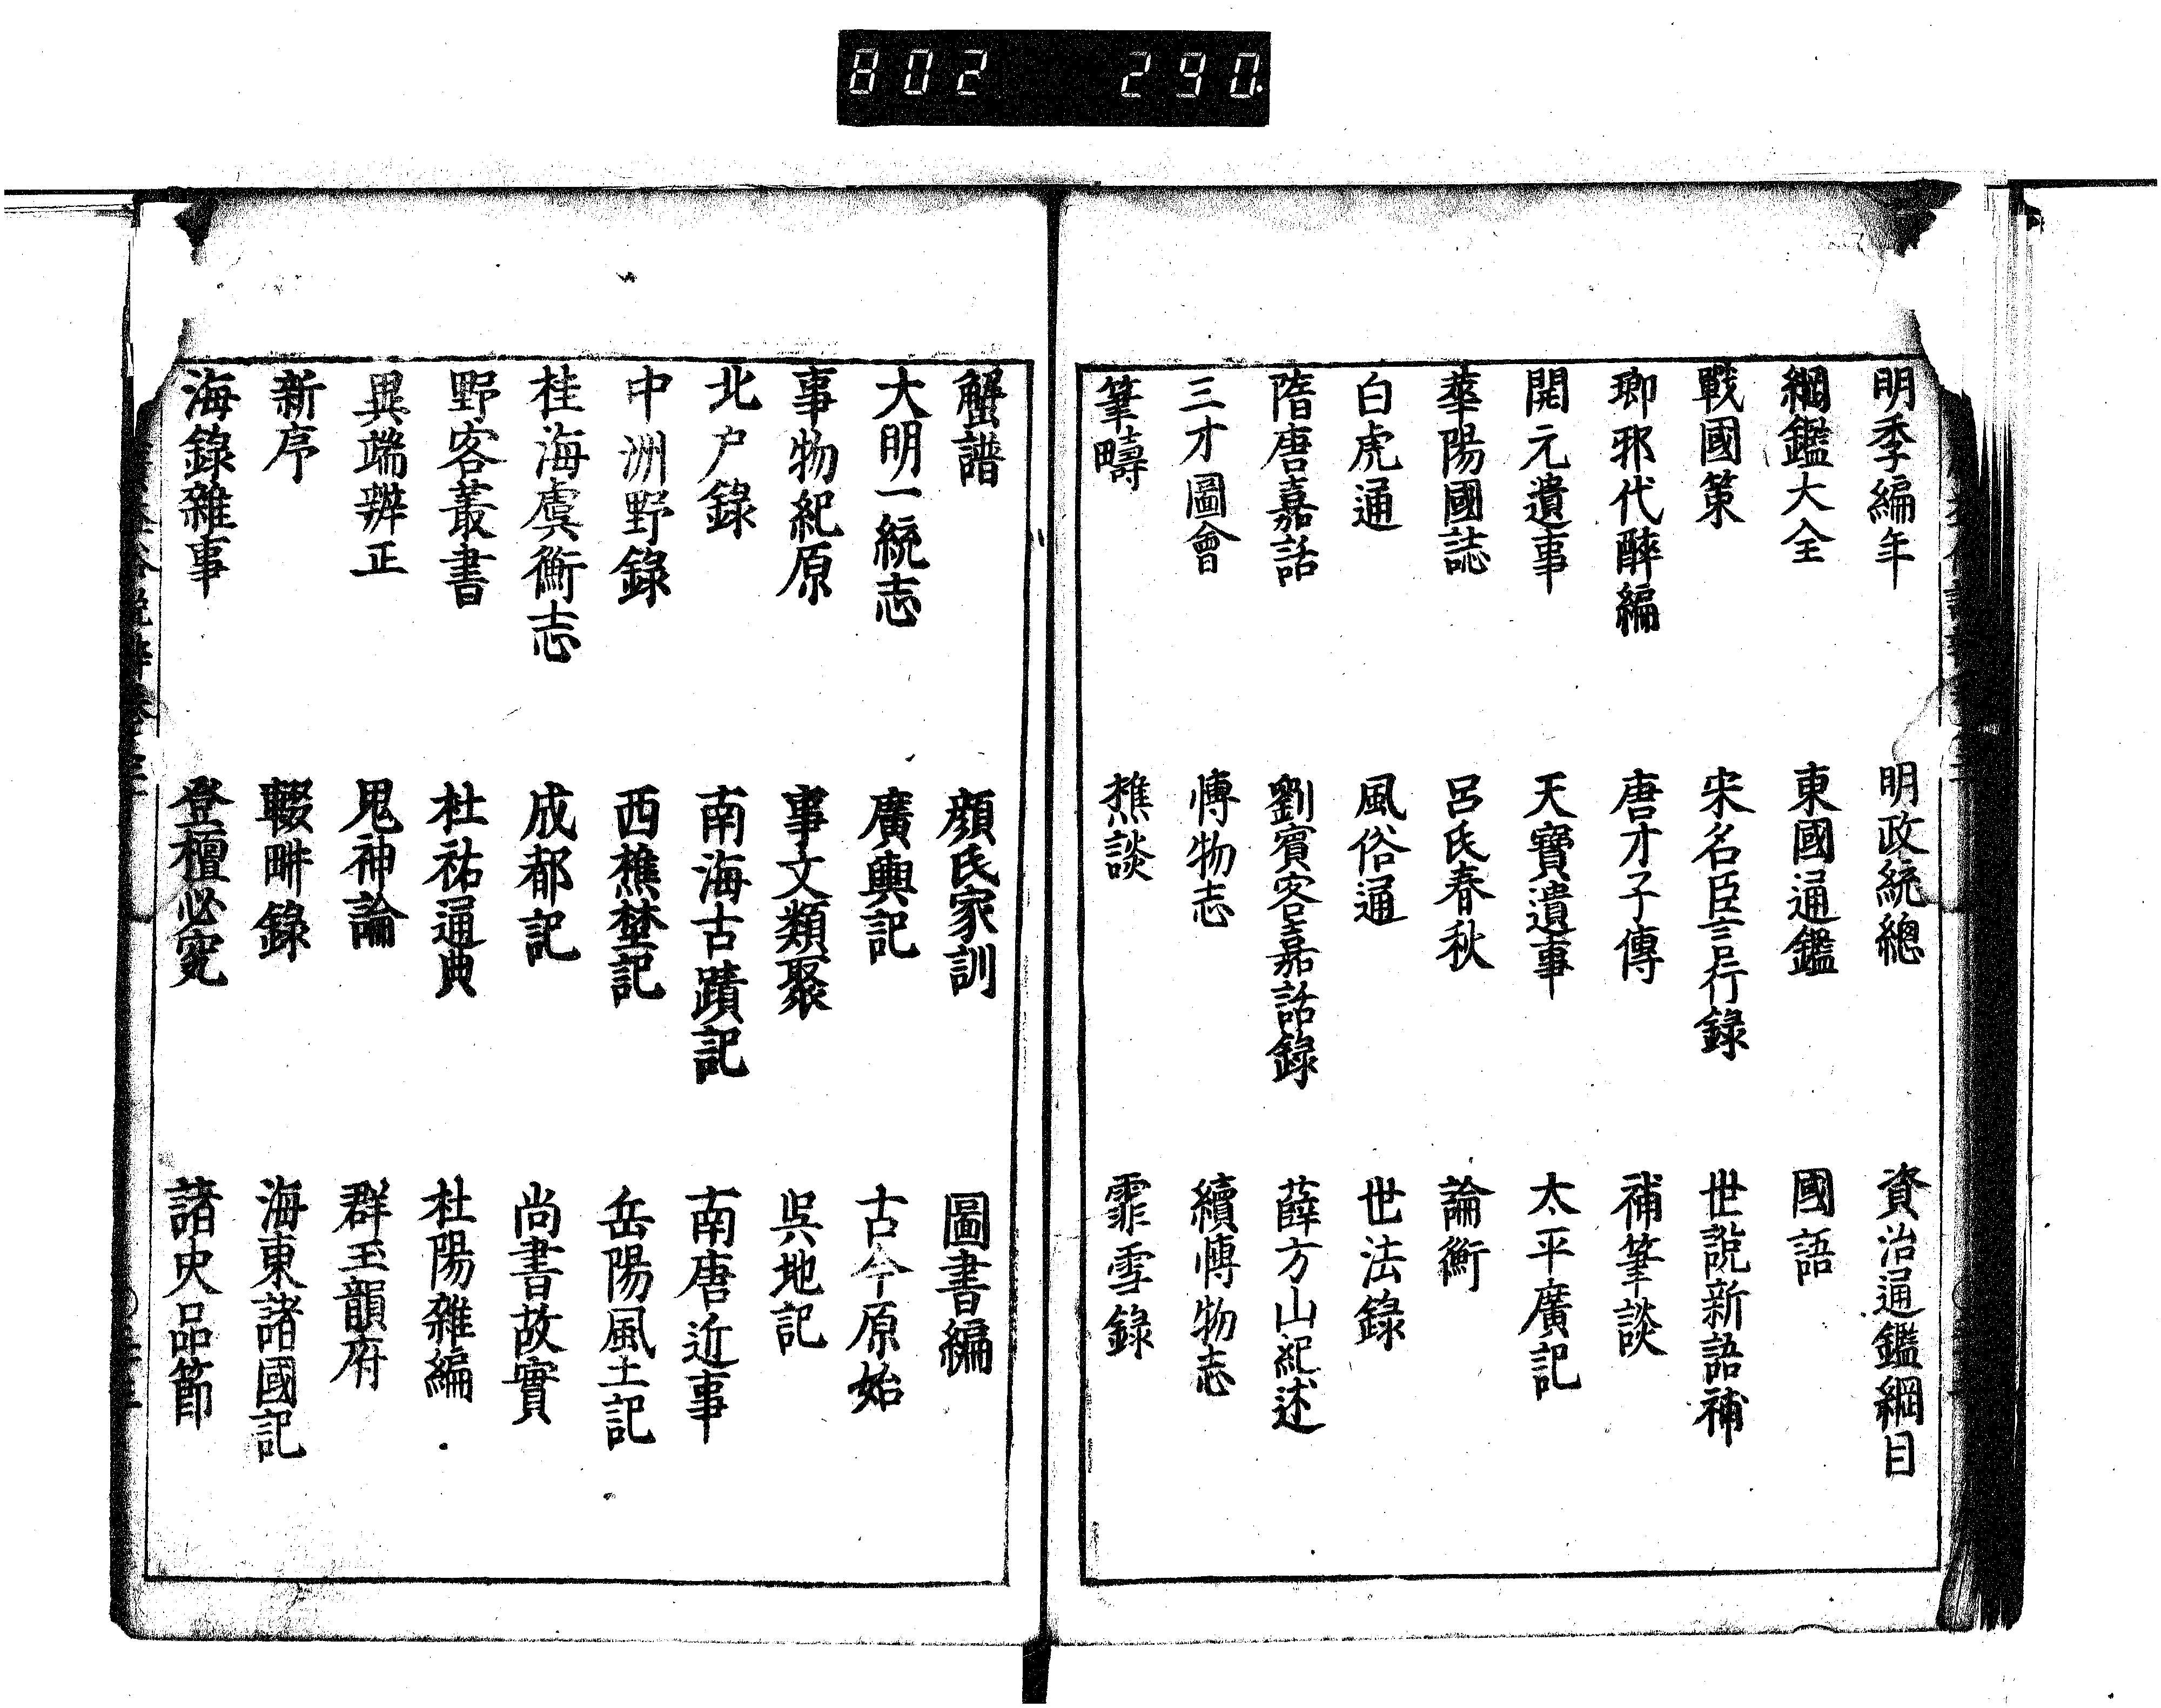 802 290.
明季編年 明政統總 資治通鑑綱目
綱鑑大全 東國通鑑 國語
戰國策 宋名臣言行錄 世說新語補
瑯邪代醉編 唐才子傳 補筆談
開元遺事 天寶遺事 太平廣記
華陽國誌 呂氏春秋 論衡
白虎通 風俗通 世法錄
隋唐嘉話 劉賓客嘉話錄 薛方山紀述
三才圖會 博物志 續博物志
筆疇 樵談 霏雪錄
蟹譜 顏氏家訓 圖書編
大明一統志 廣輿記 古今原始
事物紀原 事文類聚 吳地記
北户錄 南海古蹟記 南唐近事
中洲野錄 西樵埜記 岳陽風土記
桂海虞衡志 成都記 尚書故實
野客叢書 杜祐通典 杜陽雜編
異端辨正 鬼神論 群玉韻府
新序 輟畊錄 海東諸國記
海錄雜事 登檀必究 諸史品節